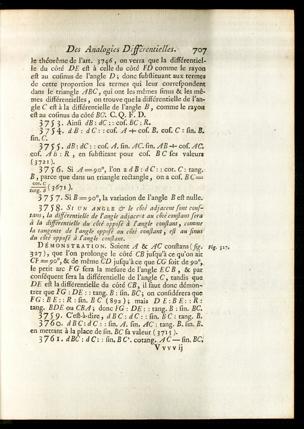 Des Analogies Différentielles. 707
le théorême de l'art. 3746, on verra que la différentiel-
le du côté DE est à celle du côté FD comme le rayon
est au cosinus de l'angle D; donc substituant aux termes
de cette proportion les termes qui leur correspondent
dans le triangle ABC, qui ont les mêmes sinus & les mê-
mes différentielles, on trouve que la différentielle de l'an-
gle C est à la différentielle de l'angle B, comme le rayon
est au cosinus du côté BC. C. Q. F. D.
3753. Ainsi dB : dC :: cos. BC : R.
3754. dB : dC :: cos. A + cos. B. cos. C : sin. B.
sin. C.
3755. dB : dC :: cos. A. sin. AC. sin. AB + cos. AC.
cos. AB : R, en substituant pour cos. BC ses valeurs
(3721).
3756. Si A = 90°, l'on a dB : dC :: cot. C : tang.
B, parce que dans un triangle rectangle, on a cos. BC =
cot. C / tang. B (3671).
3757. Si B = 90°, la variation de l'angle B est nulle.
3758. SI UN ANGLE & le côté adjacent sont cons-
tans, la différentielle de l'angle adjacent au côté constant sera
à la différentielle du côté opposé à l'angle constant, comme
la tangente de l'angle opposé au côté constant, est au sinus
du côté opposé à l'angle constant.
DÉMONSTRATION. Soient A & AC constans (fig. Fig. 327.
327), que l'on prolonge le côté CB jusqu'à ce qu'on ait
CF = 90°, & de même CD jusqu'à ce que CG soit de 90°,
le petit arc FG sera la mesure de l'angle ECB, & par
conséquent sera la différentielle de l'angle C, tandis que
DE est la différentielle du côté CB, il faut donc démon-
trer que FG : DE :: tang. B : sin. BC; on considérera que
FG : BE :: R : sin. BC (892); mais DE : BE :: R :
tang. BDE ou CBA; donc FG : DE :: tang. B : sin. BC.
3759. C'est-à-dire, dBC : dC :: sin. BC : tang. B.
3760. dBC : dC :: sin. A. sin. AC : tang. B. sin. B.
en mettant à la place de sin. BC sa valeur (3715).
3761. dBC : dC :: sin. BC². cotang. AC — sin. BC.
V v v v ij